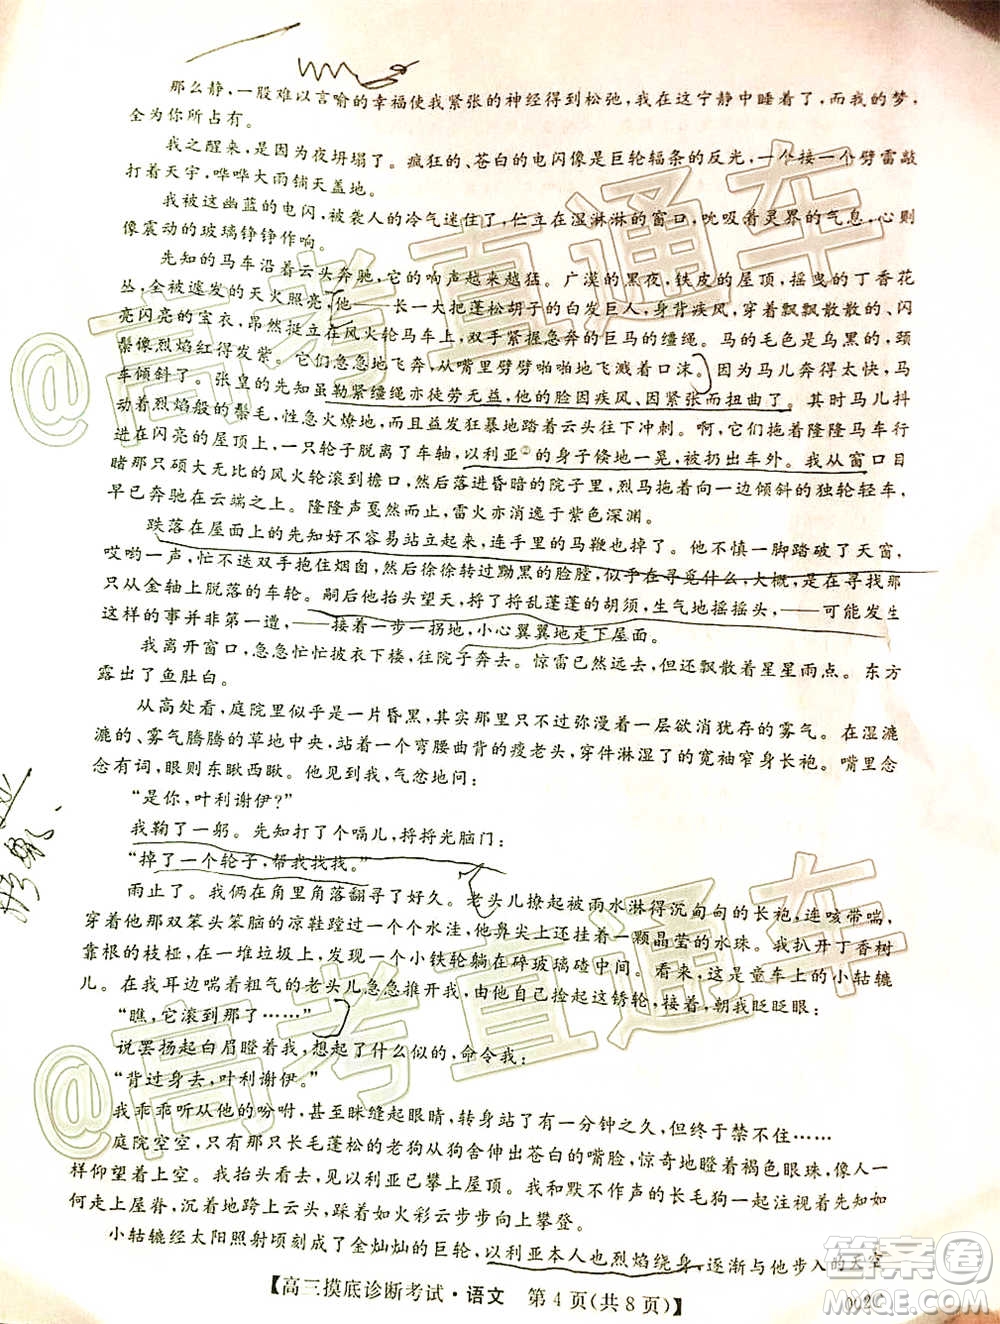 那么静，一股难以言喻的幸福使我紧张的神经得到松弛，我在这宁静中睡着了，而我的梦，
全为你所占有。
我之醒来，是因为夜坍塌了。疯狂的、苍白的电闪像是巨轮辐条的反光，一个接一个劈雷敲
打着天宇，哗哗大雨铺天盖地。
我被这幽蓝的电闪，被袭人的冷气迷住了，伫立在湿淋淋的窗口，吮吸着灵界的气息，心则
像震动的玻璃铮铮作响。
先知的马车沿着云头奔驰，它的响声越来越猛。广漠的黑夜，铁皮的屋顶，摇曳的丁香花
丛，全被遽发的天火照亮，他——一长一大把蓬松胡子的白发巨人，身背疾风，穿着飘飘散散的、闪
亮闪亮的宝衣，昂然挺立在风火轮马车上，双手紧握急奔的巨马的缰绳。马的毛色是乌黑的，颈
鬃像烈焰红得发紫。它们急急地飞奔，从嘴里劈劈啪啪地飞溅着口沫。因为马儿奔得太快，马
车倾斜了。张皇的先知虽勒紧缰绳亦徒劳无益，他的脸因疾风、因紧张而扭曲了。其时马儿抖
动着烈焰般的鬃毛，性急火燎地、而且愈发狂暴地踏着云头往下冲刺。啊，行驶着的隆隆马车与
进在闪亮的屋顶上，一只轮子脱离了车轴，以利亚②的身子倏地一晃，被扔出车外。我从窗口目
睹那只硕大无比的风火轮滚过檐口，在昏暗的院子里，烈马拖着一边倾斜的独轮车，
早已奔驰在云端之上。隆隆声远去，雷火亦消逝于紫色深渊。
跌落在屋面上的先知好不容易站立起来，连手里的马鞭也掉了。他不慎一脚踏破了天窗，
哎哟一声，忙不迭双手抱住烟囱，然后徐徐转过黝黑的脸膛，似乎在寻觅什么，大概，是在寻找那
只从金轴上脱落的车轮。嗣后他抬头望天，捋了捋乱蓬蓬的胡须，生气地摇摇头，——可能发生
这样的事并非第一遭，——接着一步一拐地，小心翼翼地走下屋面。
我离开窗口，急急忙忙披衣下楼，往院子奔去。惊雷已然远去，但还飘散着星星雨点。东方
露出了鱼肚白。
从高处看，庭院里似乎是一片昏黑，其实那里只不过弥漫着一层欲消犹存的雾气。在湿漉
漉的、雾气腾腾的草地中央，站着一个弯腰曲背的瘦老头，穿件淋湿了的宽袖窄身长袍。嘴里念
念有词，眼则东瞅西瞅。他见到我，气忿地问：
“是你，叶利谢伊？”
我鞠了一躬。先知打了个嗝儿，捋捋光脑门：
“掉了一个轮子，帮我找找。”
雨止了。我俩在角里角落翻寻了好久。老头儿撩起被雨水淋得沉甸甸的长袍，连咳带喘，
穿着他那双笨头笨脑的凉鞋蹚过一个个水洼，他鼻尖上还挂着一颗晶莹的水珠。我扒开丁香树
靠根的枝桠，在一堆垃圾上，发现一个小铁轮躺在碎玻璃碴中间。看来，这是童车上的小轱辘
儿。在我耳边喘着粗气的老头儿急急推开我，使由他自己捡起这锈轮，接着，朝我眨眨眼：
“瞧，它滚到那了……”
说罢扬起白眉瞪着我，想起了什么似的，命令我：
“背过身去，叶利谢伊。”
我乖乖听从他的吩咐，甚至眯缝起眼睛，转身站了有一分钟之久，最终于禁不住……
庭院空空，只有那只长毛蓬松的老狗从狗舍伸出苍白的嘴脸，惊奇地瞪着褐色眼珠，像人一
样仰望着上空。我抬头看去，以利亚已攀上屋顶。我和默不作声的长毛狗一起注视着先知如
何走上屋脊，沉着地跨上云头，踩着如火彩云步步向上攀登。
小轱辘经太阳照射顷刻成了金灿灿的巨轮，以利亚本人也烈焰绕身，逐渐与他步入的天空
【高三摸底诊断考试·语文 第4页(共8页)】
002C
@高考直通车
@高考直通车
答案圈
MXQE.COM